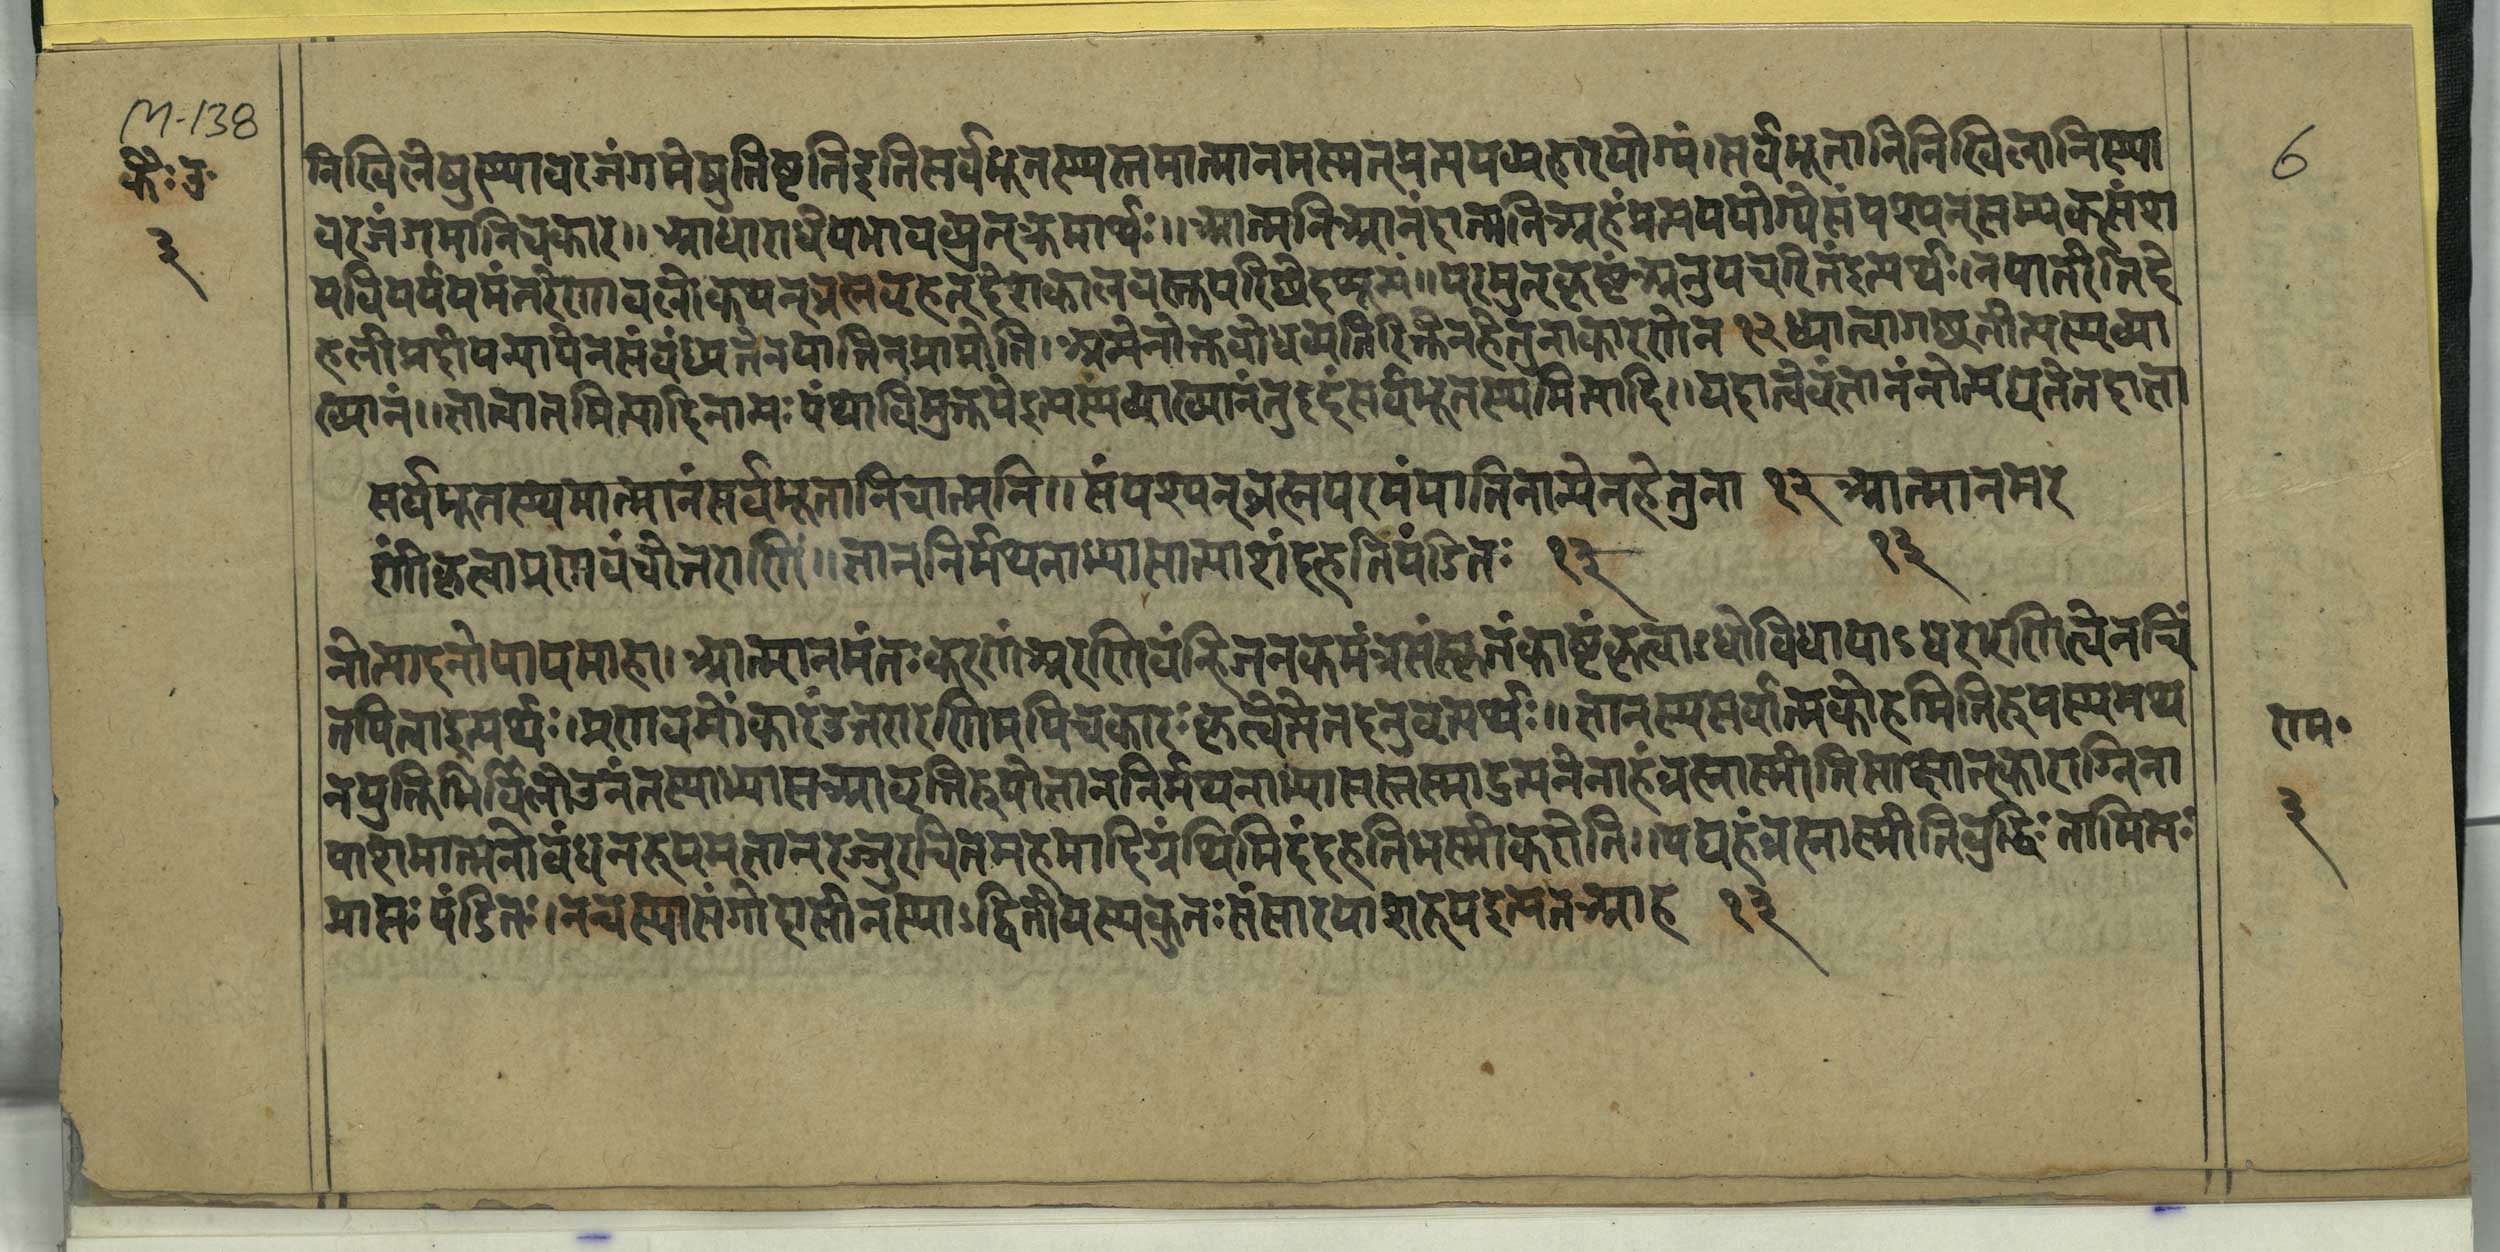 M-138
कैः उ॰
३
6
निखिलेषुस्थावरजंगमेषुतिष्टतिइतिसर्वभूतस्थस्तमात्मानमस्मत्प्रत्ययव्यवहारयोग्यं।सर्वभूतानिनिखिलानिस्था
वरजंगमानिचकारः॥आधाराधेयभावव्यत्क्रमार्थः॥आत्मनिआनंदात्मनिअहंप्रत्यययोग्येसंपश्यन्सम्यक्संश
यविपर्यय वलोकयन्ब्रह्मबृहत्देशकालवस्तुपरिछेदशून्यं॥परमुत्कृष्टंअनुपचरितंइत्यर्थः।नयातीतिदे
हलीप्रदीपन्यायेनसंबंध्यतेनयातिनप्राप्नोति।अन्येनोक्तबोधव्यतिरिक्तेनहेतुनाकारणेन१२ध्यात्वागछतीत्यस्यव्या
ख्यानं॥ज्ञात्वातमित्यादिनान्यः पंथाविमुक्तयेइत्यस्यव्याख्यानंतुइदंसर्वभूतस्थमित्यादि॥यदात्वेवंज्ञानंनोत्पद्यतेतदाज्ञा
सर्वभूतस्थमात्मानंसर्वभूतानिचात्मनि॥संपश्यन्ब्रह्मपरमंयातिनान्येनहेतुना १२ आत्मानमर
णिंकृत्वाप्रणवंचोत्तरारणिं॥ज्ञाननिर्मथनाभ्यासात्पाशंदहतिपंडितः १३ १३
नोत्पादनोपायमाहा।आत्मानमंतःकरणंअरणिंवंन्हिजनकमंत्रसंस्कृतंकाष्टंकृत्वाऽधोविधायाऽधरारणित्वेनचिं
तयित्वाइत्यर्थः।प्रणवमोंकारंउत्तरारणिमपिचकारः कृत्वेत्येतदनुवृत्यर्थः॥ज्ञानस्यसर्वात्मकोहमितिरूपस्यमथ
नंयुक्तिभिर्विलोडनंतस्याभ्यासआवृत्तिरूपोज्ञाननिर्मथनाभ्यासस्तस्मादुत्पन्नेनाहंब्रह्मास्मीतिसाक्षात्काराग्निना
पाशमात्मनोबंधनरूपमज्ञानरज्जुरचितमहमादिग्रंथिमिदंदहतिभस्मीकरोति।यद्यहंब्रह्मास्मीतिबुद्धिः तामितः
प्राप्तः पंडितः।नन्वस्यासंगोदासीनस्याऽद्वितीयस्यकुतः संसारपाशरूपइत्यतआह १३
राम॰
३